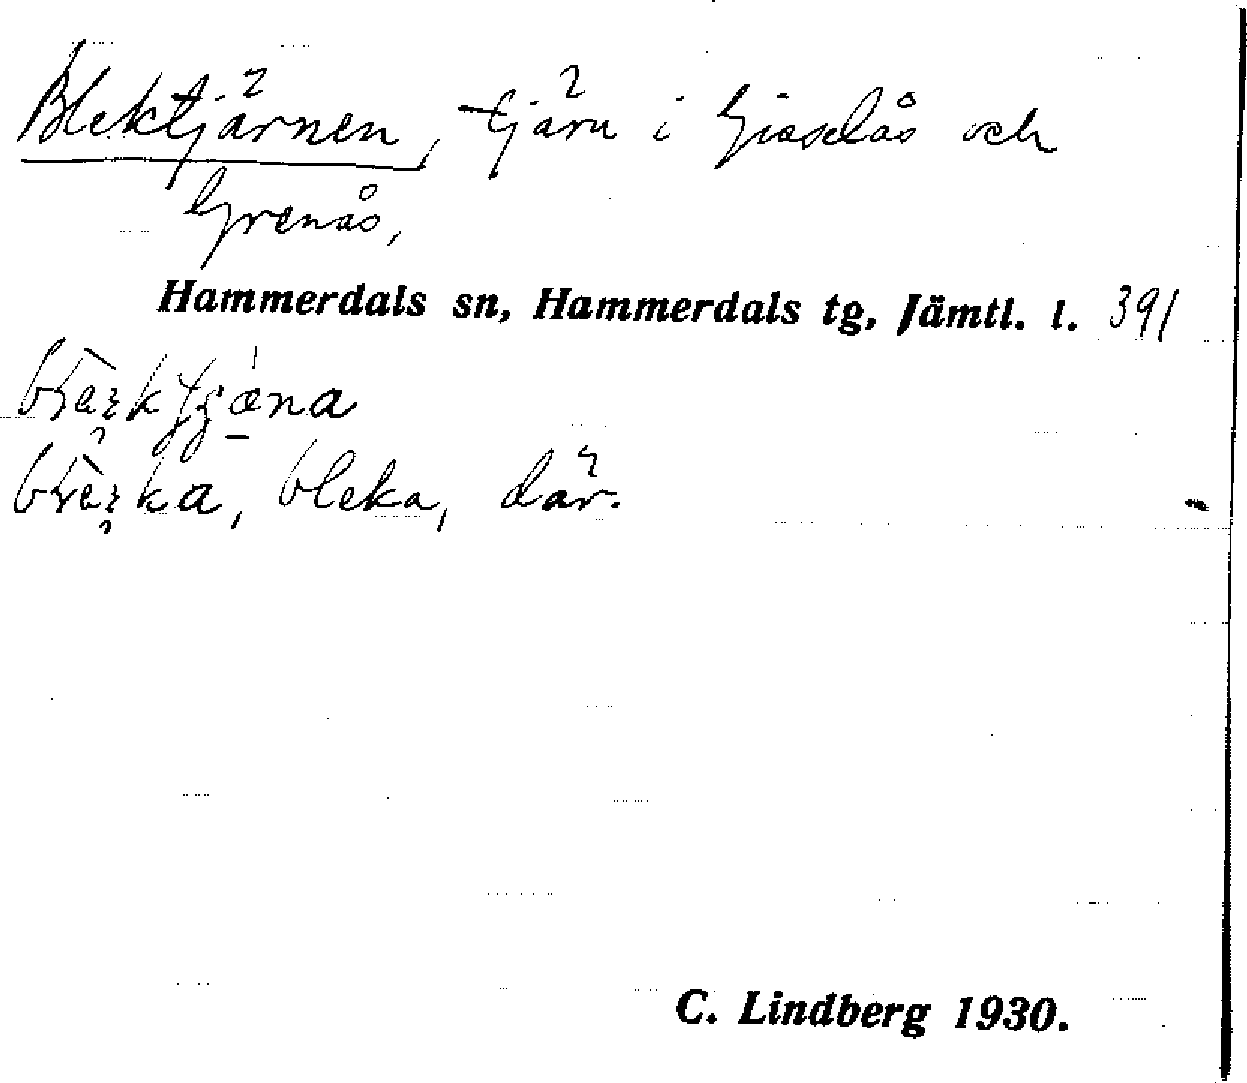 Blektjärnen, tjärn i Gisselås och
Grenås,
Hammerdals sn, Hammerdals tg, Jämtl. l. 391
bleka, där.
C. Lindberg 1930.